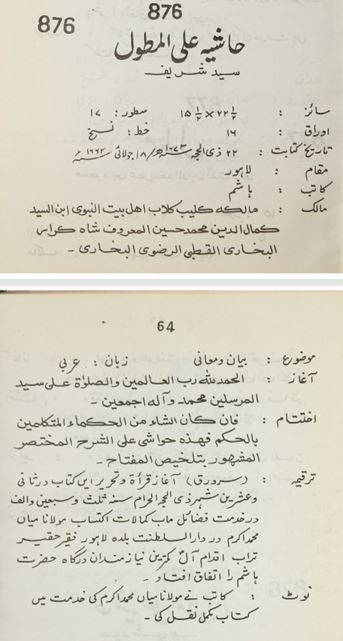 876
876
حاشیه علی المطول
سید شریف
سائز : ۲۲ ½ × ۱۵ ½ سطور : ۱۷
اوراق : ۱۶ خط : نسخ
تاریخ کتابت : ۲۲ ذی الحجہ ۱۰۷۳ھ / ۱۸ جولائی ۱۶۶۳ء
مقام : لاہور
کاتب : ہاشم
مالک : مالکه کلیب کلاب اهل بیت النبوی ابن السید
کمال الدین محمد حسین المعروف شاه
البخاری القطبی الرضوی البخاری ۔
64
موضوع : بیان و معانی زبان : عربی
آغاز : الحمد لله رب العالمین والصلاة علی سید
المرسلین محمد و آله اجمعین ۔
اختتام : فان کان الشاء من الحکماء والمتکلمین
بالحکم فهذه حواشی علی الشرح المختصر
المشهور بتلخیص المفتاح ۔
ترقیمہ : (سرورق) آغاز قرأة و تحریر این کتاب در ثانی
وعشرین شهر ذی الحجة الحرام سنه ثلث و سبعین والف
در خدمت فضائل مآب کمالات اکتساب مولانا میاں
محمد اکرم در دار السلطنت بلده لاہور فقیر حقیر
تراب اقدام کمترین نیازمندان درگاه حضرت
ہاشم را اتفاق افتاد ۔
نوٹ : کاتب نے مولانا میاں محمد اکرم کی خدمت میں
کتاب مکمل نقل کی ۔